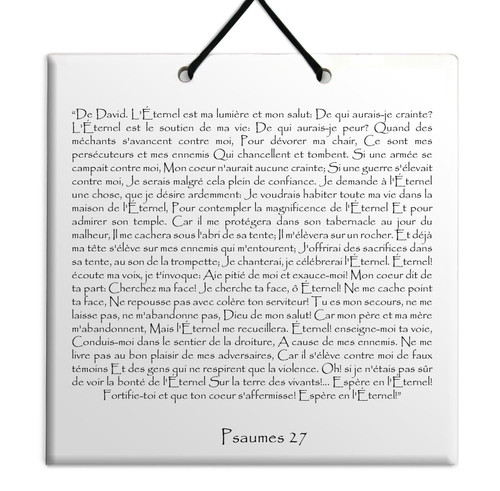 “De David. L'Éternel est ma lumière et mon salut: De qui aurais-je crainte?
L'Éternel est le soutien de ma vie: De qui aurais-je peur? Quand des
méchants s'avancent contre moi, Pour dévorer ma chair, Ce sont mes
persécuteurs et mes ennemis Qui chancellent et tombent. Si une armée se
campait contre moi, Mon coeur n'aurait aucune crainte; Si une guerre s'élevait
contre moi, Je serais malgré cela plein de confiance. Je demande à l'Éternel
une chose, que je désire ardemment: Je voudrais habiter toute ma vie dans la
maison de l'Éternel, Pour contempler la magnificence de l'Éternel Et pour
admirer son temple. Car il me protégera dans son tabernacle au jour du
malheur, Il me cachera sous l'abri de sa tente; Il m'élèvera sur un rocher. Et déjà
ma tête s'élève sur mes ennemis qui m'entourent; J'offrirai des sacrifices dans
sa tente, au son de la trompette; Je chanterai, je célébrerai l'Éternel. Éternel!
écoute ma voix, je t'invoque: Aie pitié de moi et exauce-moi! Mon coeur dit de
ta part: Cherchez ma face! Je cherche ta face, ô Éternel! Ne me cache point
ta face, Ne repousse pas avec colère ton serviteur! Tu es mon secours, ne me
laisse pas, ne m'abandonne pas, Dieu de mon salut! Car mon père et ma mère
m'abandonnent, Mais l'Éternel me recueillera. Éternel! enseigne-moi ta voie,
Conduis-moi dans le sentier de la droiture, A cause de mes ennemis. Ne me
livre pas au bon plaisir de mes adversaires, Car il s'élève contre moi de faux
témoins Et des gens qui ne respirent que la violence. Oh! si je n'étais pas sûr
de voir la bonté de l'Éternel Sur la terre des vivants!... Espère en l'Éternel!
Fortifie-toi et que ton coeur s'affermisse! Espère en l'Éternel!”
Psaumes 27